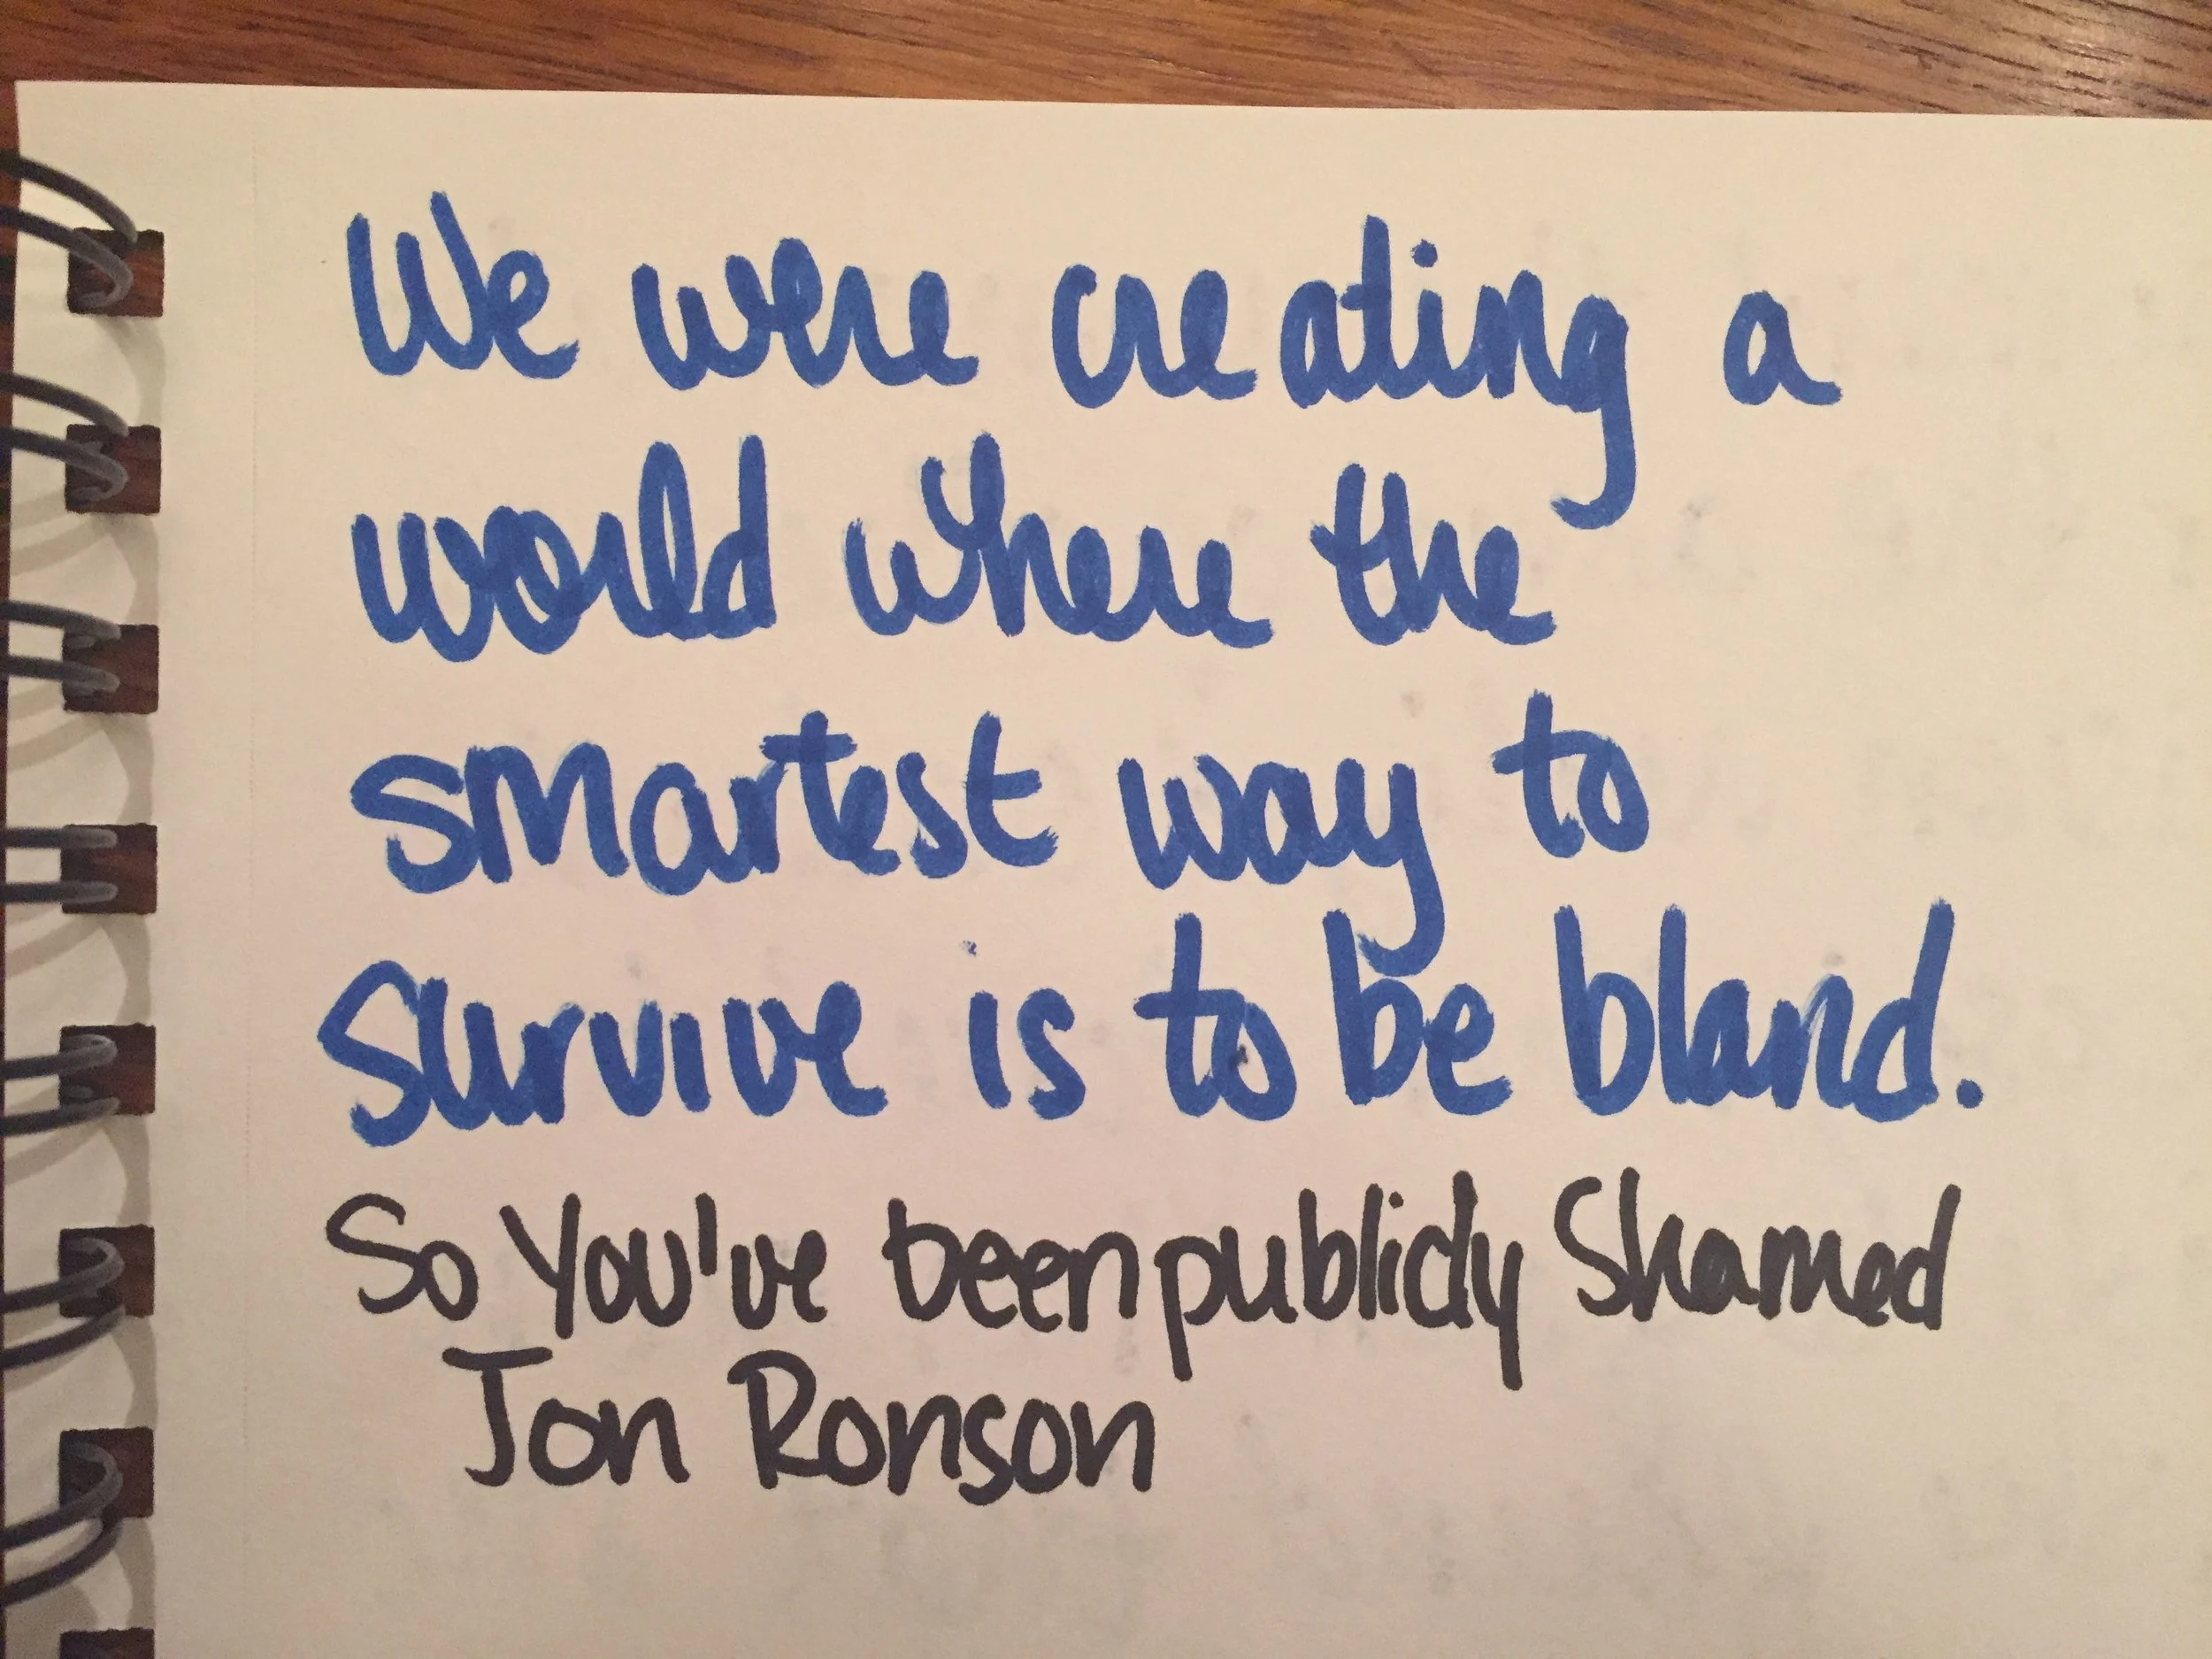 We were creating a
world where the
smartest way to
survive is to be bland.
So You've been publicly Shamed
Jon Ronson